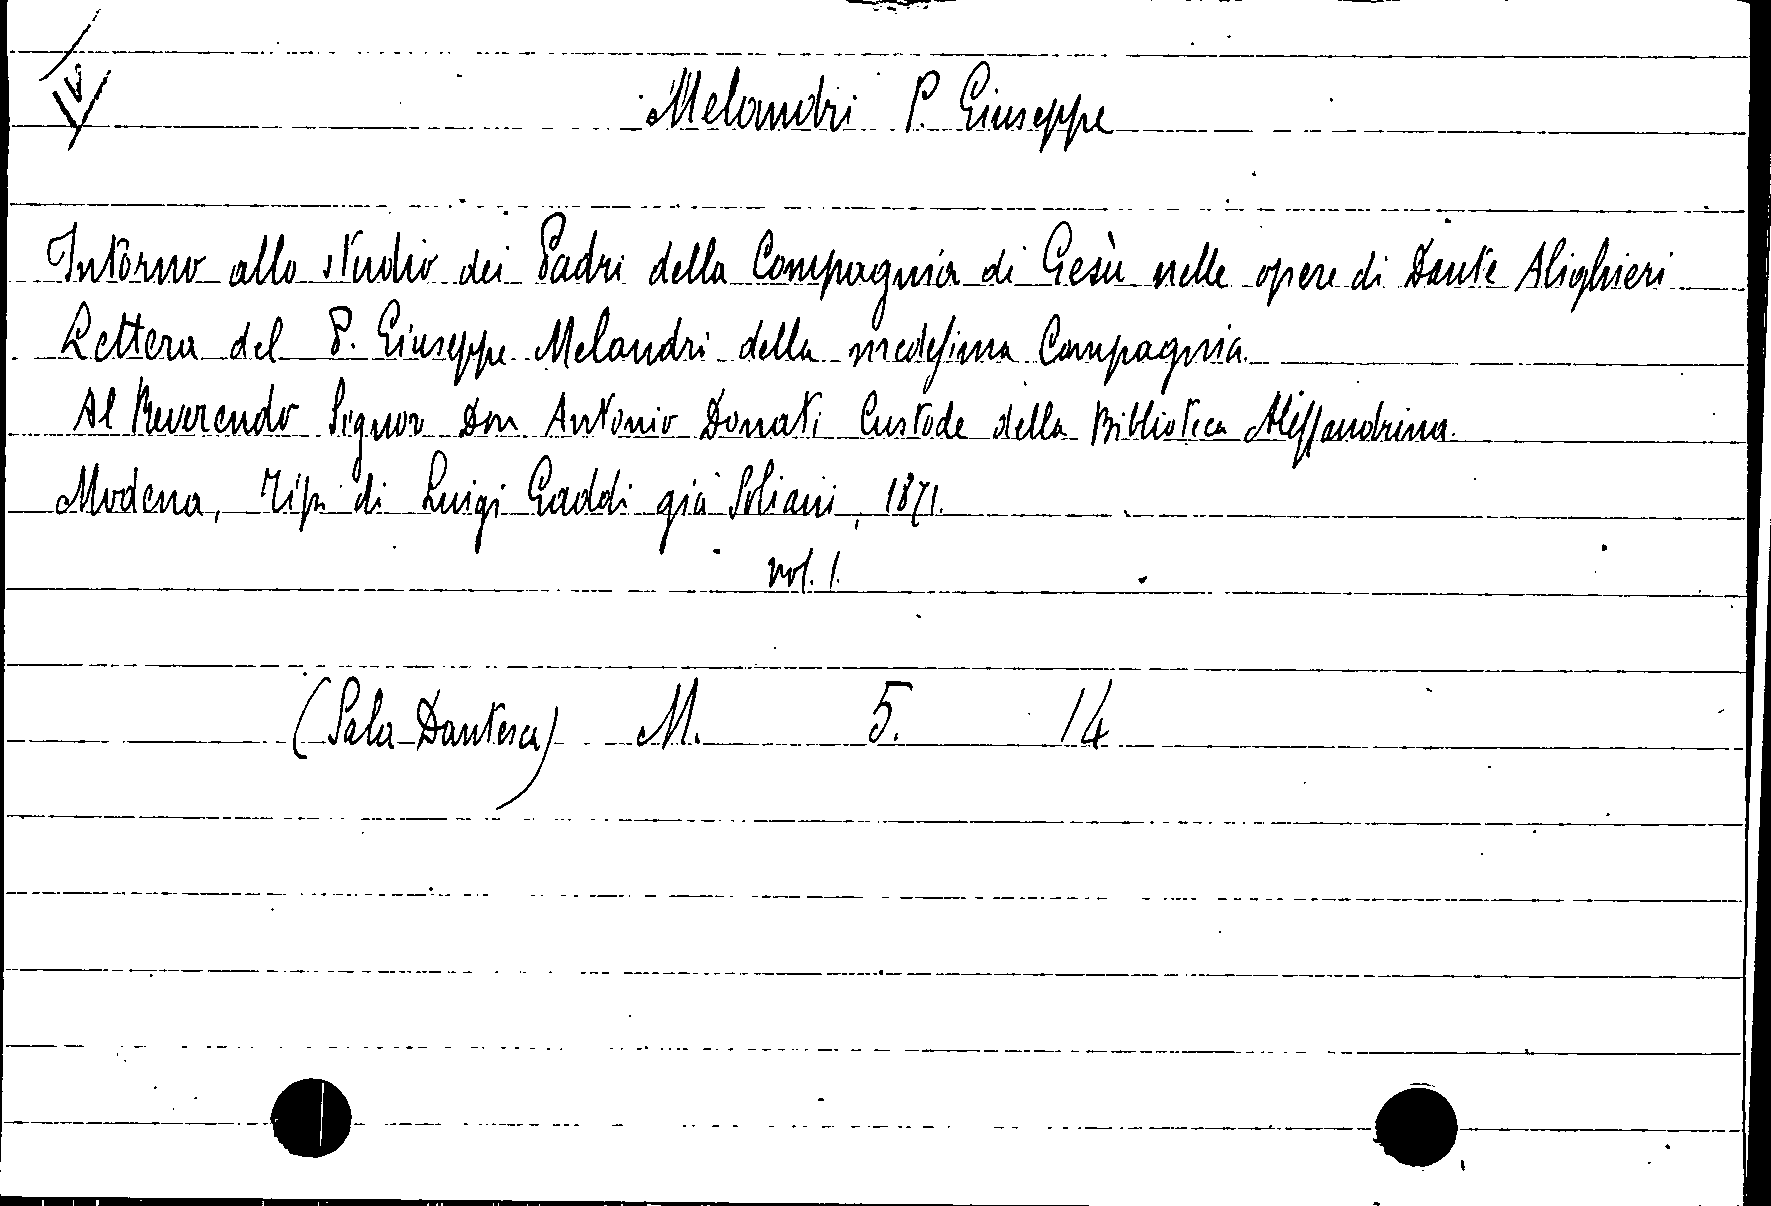 Melandri P. Giuseppe
Intorno allo studio dei Padri della Compagnia di Gesù nelle opere di Dante Alighieri
Lettera del P. Giuseppe Melandri della medesima Compagnia.
Al Reverendo Signor Don Antonio Donati Custode della Biblioteca Alessandrina.
Modena, Tip. di Luigi Gaddi già Soliani, 1871.
vol. 1.
(Sala Dantesca) M. 5. 14